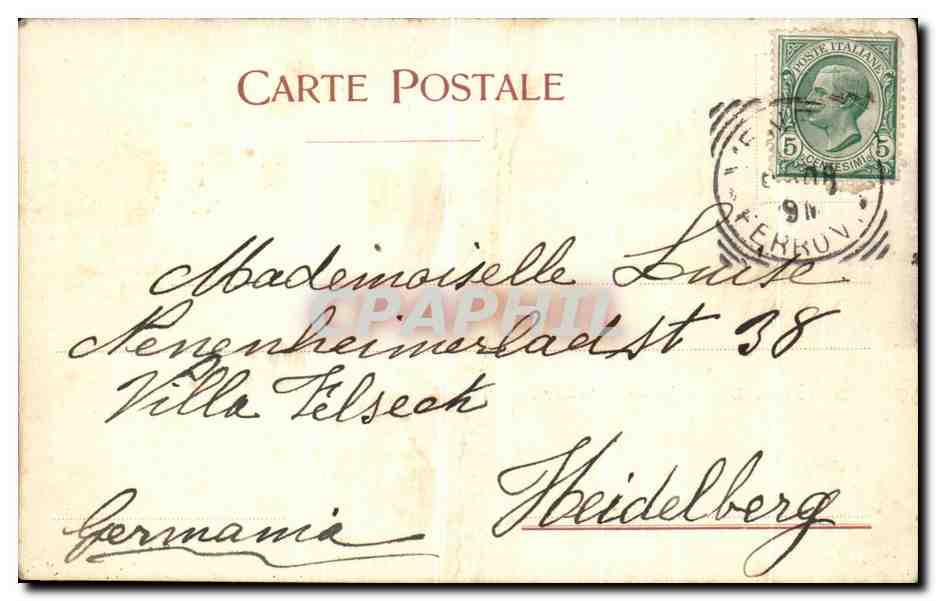 CARTE POSTALE
POSTE ITALIANE
5 5
CENTESIMI
FERROV
Mademoiselle Luise
Nenenheimerladst 38
Villa Felseck
Heidelberg
Germania
CPAPHIL